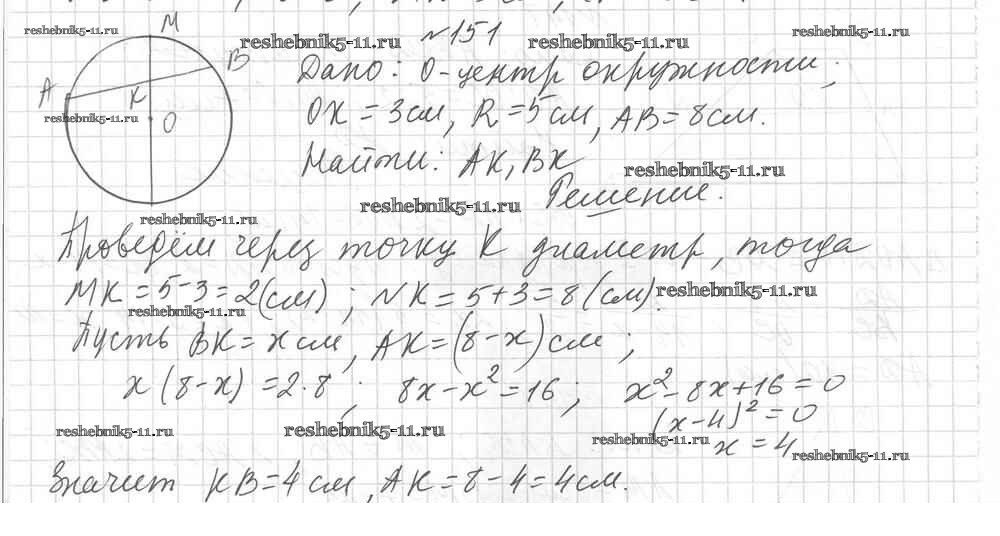 reshebnik5-11.ru
М
reshebnik5-11.ru
№151
reshebnik5-11.ru
reshebnik5-11.ru
А
К
В
О
reshebnik5-11.ru
Дано: О-центр окружности;
ОК = 3см, R = 5см, АВ = 8см.
Найти: АК, ВК
reshebnik5-11.ru
Решение.
reshebnik5-11.ru
reshebnik5-11.ru
Проведём через точку К диаметр, тогда
МК = 5-3 = 2(см); NК = 5+3 = 8(см).
reshebnik5-11.ru
reshebnik5-11.ru
Пусть ВК = х см, АК = (8-х) см;
х(8-х) = 2·8; 8х-х² = 16; х²-8х+16 = 0
(х-4)² = 0
х = 4
reshebnik5-11.ru
reshebnik5-11.ru
reshebnik5-11.ru
reshebnik5-11.ru
Значит КВ = 4 см, АК = 8-4 = 4см.